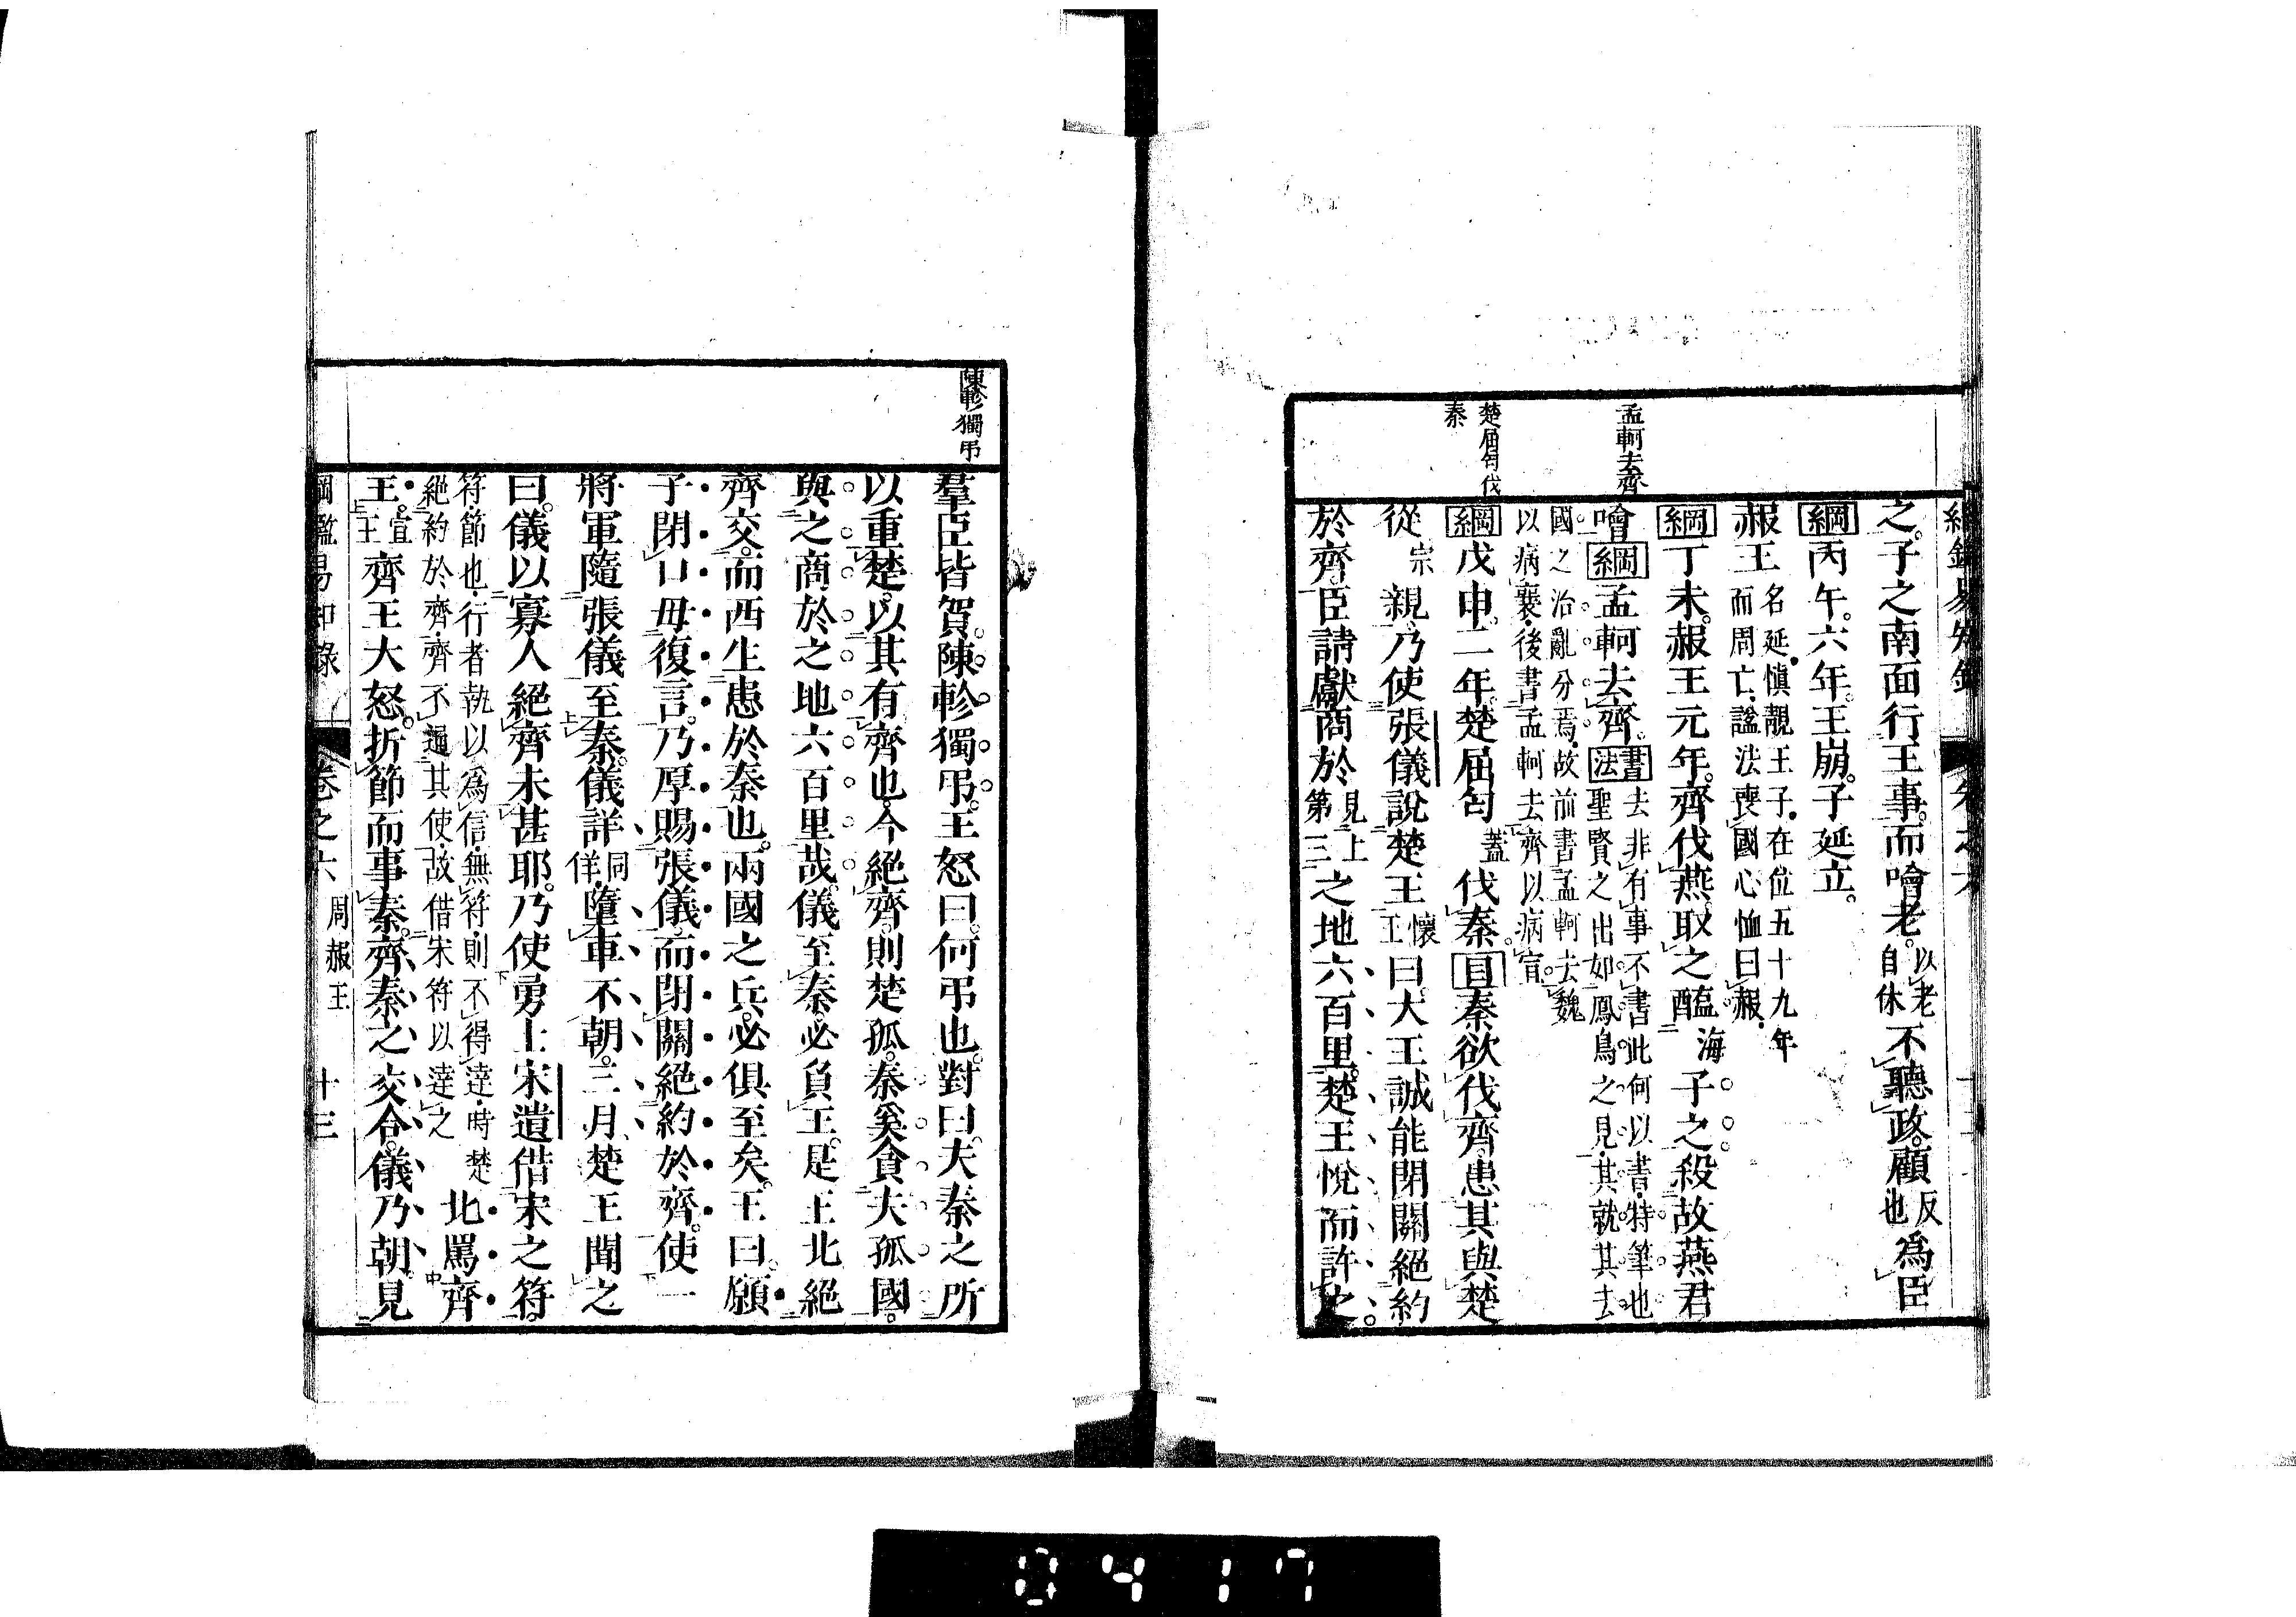 綱鑑易知錄 卷之六
孟軻去齊
楚屈匄伐
秦
之。子之南面行王事。而噲老。以老自休不聽政。顧反也為臣
綱丙午。六年。王崩。子延立。
赧王名延愼靚王子在位五十九年而周亡諡法喪國心恤曰赧
綱丁未。赧王元年。齊伐燕。取之。醢海子之。殺故燕君
噲綱孟軻去齊。書法去非有事不書此何以書特筆也聖賢之出如鳳鳥之見其就其去
國之治亂分焉故前書孟軻去魏以病襄後書孟軻去齊以病宣
綱戊申。二年。楚屈匄蓋伐秦。目秦欲伐齊。患其與楚
從宗親。乃使張儀說楚王懷王曰。大王誠能閉關絕約
於齊。臣請獻商於見上第三之地六百里。楚王悅而許之。
陳軫獨弔
羣臣皆賀。陳軫獨弔。王怒曰。何弔也。對曰。夫秦之所
以重楚。以其有齊也。今絕齊。則楚孤。秦奚貪夫孤國。
與之商於之地六百里哉。儀至秦。必負王。是王北絕
齊交。而西生患於秦也。兩國之兵。必俱至矣。王曰。願
子閉口毋復言。乃厚賜張儀。而閉關絕約於齊。使一
將軍隨張儀至秦。儀詳同佯墮車不朝。三月。楚王聞之
曰。儀以寡人絕齊未甚耶。乃使勇士宋遺借宋之符。
符節也行者執以為信無符則不得達時楚絕約於齊齊不通其使故借宋符以達之北罵齊
王。宣王齊王大怒。折節而事秦。齊秦之交合。儀乃朝。見
綱鑑易知錄 卷之六 周赧王 十三